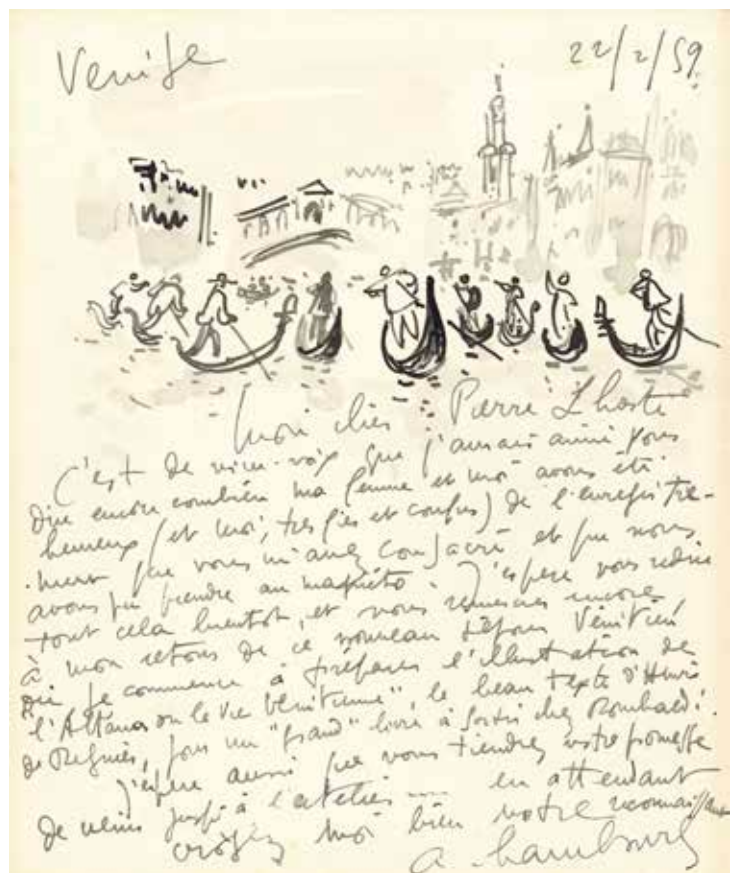 Venise
22/2/59
Mon cher Pierre Lhoste
C'est de vive-voix que j'aurais aimé vous
dire encore combien ma femme et moi avons été
heureux (et moi, très fier et confus) de l'enregistre-
-ment que vous m'avez consacré et que nous
avons pu prendre au magnéto. J'espère vous redire
tout cela bientôt, et vous remercier encore
à mon retour de ce nouveau séjour Vénitien
où je commence à préparer l'illustration de
"l'Altana ou la Vie Vénitienne", le beau texte d'Henri
de Régnier, pour un "grand" livre à sortir chez Rombaldi.
J'espère aussi que vous tiendrez votre promesse
de venir jusqu'à l'atelier — en attendant
croyez moi bien votre reconnaissant
a. hambourg